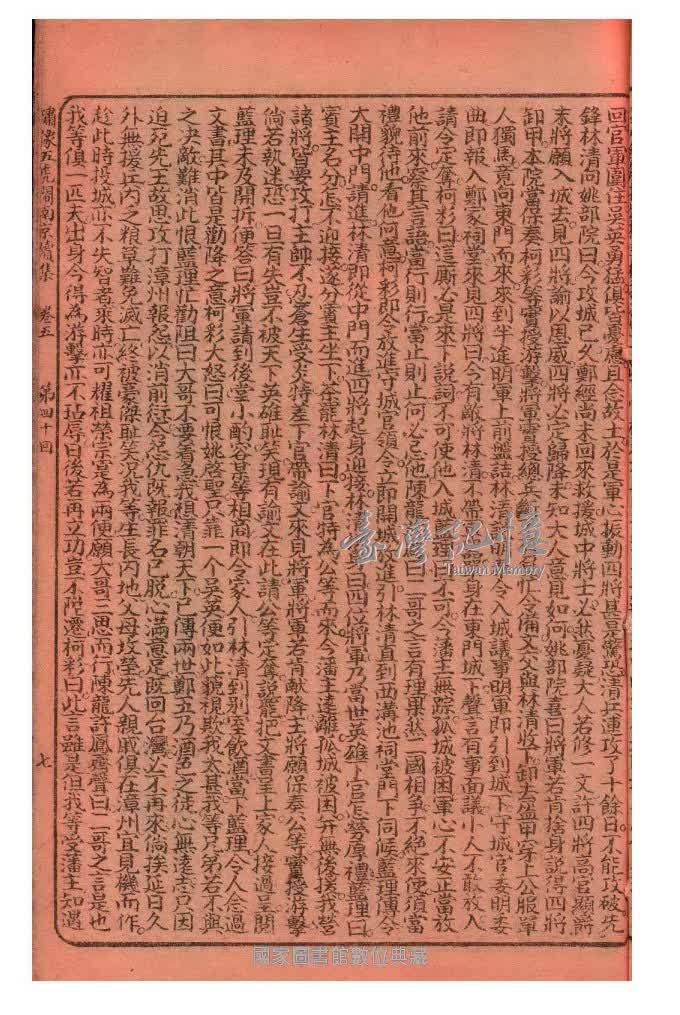 回官軍圍住吳英勇猛俱皆憂慮且念故土於是軍心振動四將甚是驚恐清兵連攻了十餘日不能攻破先
鋒林清向姚部院曰今攻城已久鄭經尚未回來救援城中將士必然憂疑大人若修一文許四將高官顯爵
末將願入城去見四將諭以恩威四將必定歸降未知大人意見如何姚部院喜曰將軍若肯捨身說得四將
卸甲本院當保奏柯彩等實授游擊將軍實授總兵 忙令備文又父與林清收下卸去盔甲穿上公服單
人獨馬竟向東門而來來到半途明軍上前盤詰林清說明 令入城議事明軍即引到城下守城官委明委
曲即報入鄭家祠堂來見四將曰今有敵將林清不帶 身在東門城下聲言有事面議小人不敢放入
請令定奪柯彩曰這厮必是來下說詞不可使他入城藍理曰不可今潘主無踪孤城被困軍心不安正當放
他前來察其言語當行則行當止則止何必忌他陳龍 曰二哥之言有理果然二國相爭不絕來使須當
禮貌待他看他何 萬柯彩即令放進守城官領令立即開城 進引林清直到西溝池祠堂門下伺候藍理傳令
大開中門請進林清即從中門而進四將起身迎接林清 曰四位將軍乃當世英雄下官怎勞厚禮藍理曰
賓主名分怎不迎接遂分賓主坐下茶罷林清曰下官特為公等而來今潘主遠離孤城被困并無後援我營
諸將皆要攻打主帥不忍蒼生受災特差下官帶諭文來見將軍將軍若肯献降主將願保奏公等實授游擊
倘若執迷恐一旦有失豈不被天下英雄恥笑現有諭文在此請公等定奪說罷把文書呈上家人接過呈閱
藍理未及開拆便答曰將軍請到後堂小酌容某等相商即令家人引林清到別室飲酒當下藍理令人念過
文書其中皆是勸降之意柯彩大怒曰可恨姚啓聖只靠一个吳英便如此藐視欺我太甚我等兄弟若不與
之决敵難消此恨藍理忙勸阻曰大哥不要着急我祖清朝天下已傳兩世鄭五乃酒色之徒心無遠志只因
迫死先王故思攻打漳州報怨以消前忿今怨仇既報罪名已脫心滿意足既回台灣必不再來倘挨延日久
外無援兵內乏粮草難免滅亡終被豪傑恥笑况我等生長內地父母坟塋先人親戚俱在漳州宜見機而作
趁此時投城亦不失智者來時亦可耀祖榮宗寔為兩便願大哥三思而行陳龍許鳳齊聲曰二哥之言是也
我等俱一匹夫出身今得為游擊亦不玷辱日後若再立功豈不陞遷柯彩曰此言雖是但我等受潘主知遇
繡像五虎閙南京續集 卷五 第四十回 七
臺灣記憶
Taiwan Memory
國家圖書館數位典藏